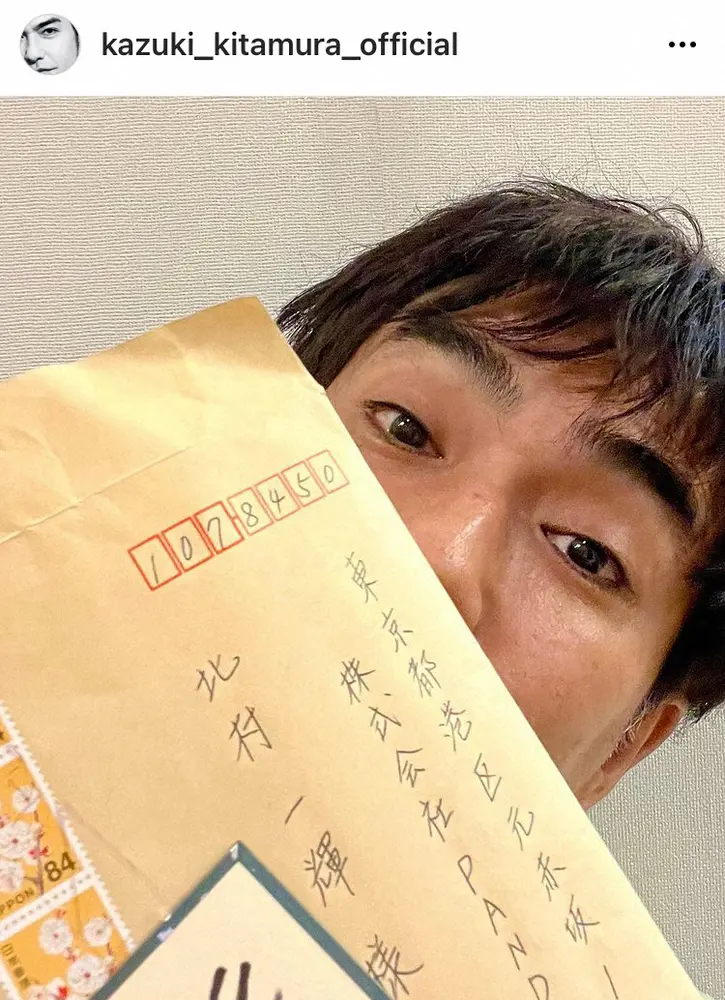 kazuki_kitamura_official
1078450
東京都港区元赤坂
株式会社PAND
北村一輝様
84
PPON